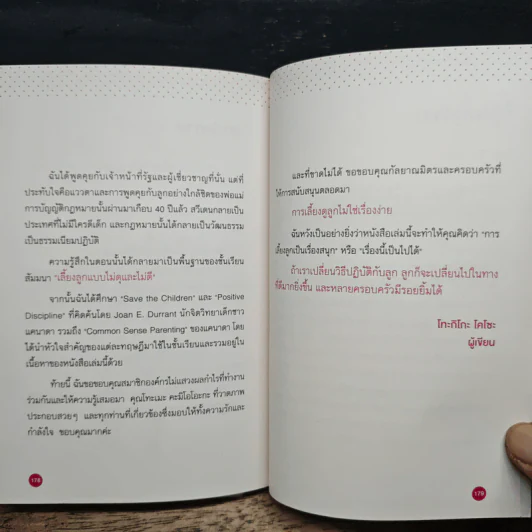 ฉันได้พูดคุยกับเจ้าหน้าที่รัฐและผู้เชี่ยวชาญที่นั่น แต่ที่
ประทับใจคือแววตาและการพูดคุยกับลูกอย่างใกล้ชิดของพ่อแม่
การบัญญัติกฎหมายนั้นผ่านมาเกือบ 40 ปีแล้ว สวีเดนกลายเป็น
ประเทศที่ไม่มีใครตีเด็ก และกฎหมายนั้นได้กลายเป็นวัฒนธรรม
เป็นธรรมเนียมปฏิบัติ
ความรู้สึกในตอนนั้นได้กลายมาเป็นพื้นฐานของชั้นเรียน
สัมมนา "เลี้ยงลูกแบบไม่ดุและไม่ตี"
จากนั้นฉันได้ศึกษา "Save the Children" และ "Positive
Discipline" ที่คิดค้นโดย Joan E. Durrant นักจิตวิทยาเด็กชาว
แคนาดา รวมถึง "Common Sense Parenting" ของแคนาดา โดย
ได้นำหัวใจสำคัญของแต่ละทฤษฎีมาใช้ในชั้นเรียนและรวมอยู่ใน
เนื้อหาของหนังสือเล่มนี้ด้วย
ท้ายนี้ ฉันขอขอบคุณสมาชิกองค์กรไม่แสวงผลกำไรที่ทำงาน
ร่วมกันและให้ความรู้เสมอมา คุณโทะเมะ คะมิโอโอะกะ ที่วาดภาพ
ประกอบสวยๆ และทุกท่านที่เกี่ยวข้องซึ่งมอบให้ทั้งความรักและ
กำลังใจ ขอบคุณมากค่ะ
178
และที่ขาดไม่ได้ ขอขอบคุณกัลยาณมิตรและครอบครัวที่
ให้การสนับสนุนตลอดมา
การเลี้ยงดูลูกไม่ใช่เรื่องง่าย
ฉันหวังเป็นอย่างยิ่งว่าหนังสือเล่มนี้จะทำให้คุณคิดว่า "การ
เลี้ยงลูกเป็นเรื่องสนุก" หรือ "เรื่องนี้เป็นไปได้"
ถ้าเราเปลี่ยนวิธีปฏิบัติกับลูก ลูกก็จะเปลี่ยนไปในทาง
ที่ดีมากยิ่งขึ้น และหลายครอบครัวมีรอยยิ้มได้
โทะกิโกะ โคโซะ
ผู้เขียน
179